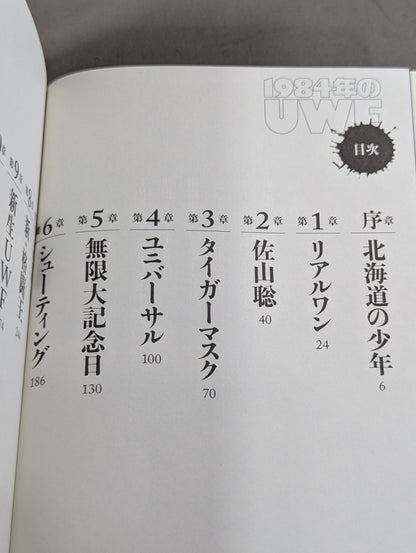 1984年の
UWF
目次
序章 北海道の少年 6
第1章 リアルワン 24
第2章 佐山聡 40
第3章 タイガーマスク 70
第4章 ユニバーサル 100
第5章 無限大記念日 130
第6章 シューティング 186
新生UWF